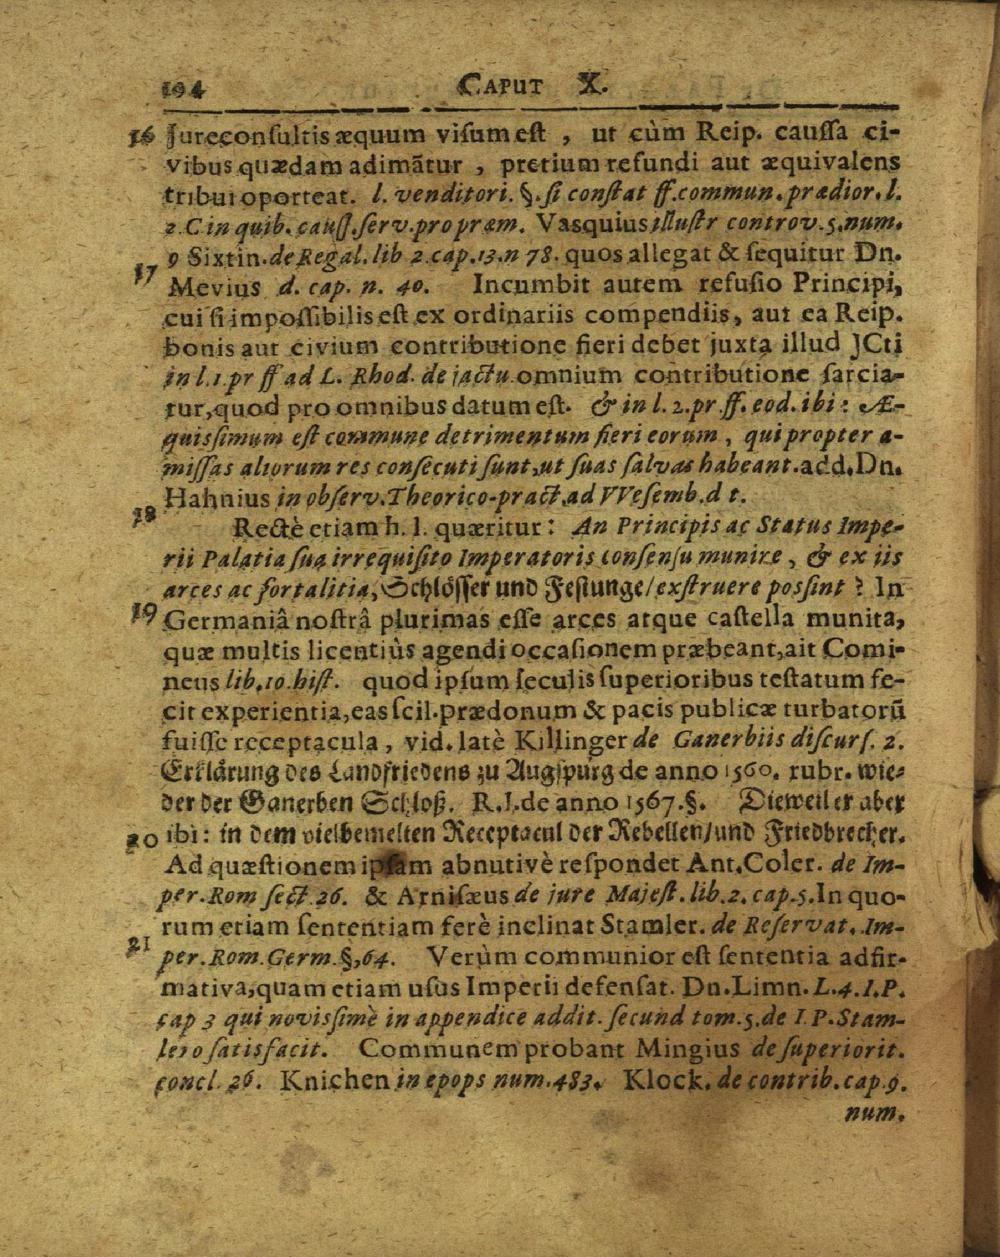 194 CAPUT X.
16 Jureconſultis æquum viſum eſt , ut cùm Reip. cauſſa ci-
vibus quædam adimãtur , pretium refundi aut æquivalens
tribui oporteat. l. venditori. §. ſi conſtat ff. commun. prædior. l.
2. C in quib. cauſſ. ſerv. pro præm. Vasquius illuſtr controv. 5. num.
9 Sixtin. de Regal. lib 2. cap. 13. n 78. quos allegat & ſequitur Dn.
17 Mevius d. cap. n. 40. Incumbit autem refuſio Principi,
cui ſi impoſſibilis eſt ex ordinariis compendiis, aut ea Reip.
bonis aut civium contributione fieri debet juxta illud JCti
in l. 1. pr ff ad L. Rhod. de jactu. omnium contributione ſarcia-
tur, quod pro omnibus datum eſt. & in l. 2. pr. ff. eod. ibi : Æ-
quisſimum eſt commune detrimentum fieri eorum , qui propter a-
miſſas aliorum res conſecuti ſunt, ut ſuas ſalvas habeant. add. Dn.
Hahnius in obſerv. Theorico-pract. ad VVeſemb. d t.
18 Rectè etiam h. l. quæritur : An Principis ac Status Impe-
rii Palatia ſua irrequiſito Imperatoris conſenſu munire , & ex iis
arces ac fortalitia, Schlöſſer und Feſtunge/ exſtruere posſint ? In
19 Germaniâ noſtrâ plurimas eſſe arces atque caſtella munita,
quæ multis licentiùs agendi occaſionem præbeant, ait Comi-
neus lib. 10. hiſt. quod ipſum ſeculis ſuperioribus teſtatum fe-
cit experientia, eas ſcil. prædonum & pacis publicæ turbatorũ
fuiſſe receptacula , vid. latè Killinger de Ganerbiis diſcurſ. 2.
Erklärung des Landfriedens zu Augſpurg de anno 1560. rubr. wie-
der der Ganerben Schloß. R. I. de anno 1567. §. Dieweil er aber
20 ibi : in dem vielbemelten Receptacul der Rebellen/ und Friedbrecher.
Ad quæſtionem ipſam abnutivè reſpondet Ant. Coler. de Im-
per. Rom ſect. 26. & Arniſæus de jure Majeſt. lib. 2. cap. 5. In quo-
rum etiam ſententiam ferè inclinat Stamler. de Reſervat. Im-
21 per. Rom. Germ. §. 64. Verùm communior eſt ſententia adfir-
mativa, quam etiam uſus Imperii defenſat. Dn. Limn. L. 4. I. P.
cap 3 qui novisſimè in appendice addit. ſecund tom. 5. de I. P. Stam-
lero ſatisfacit. Communem probant Mingius de ſuperiorit.
concl. 26. Knichen in epops num. 483. Klock. de contrib. cap. 9.
num.